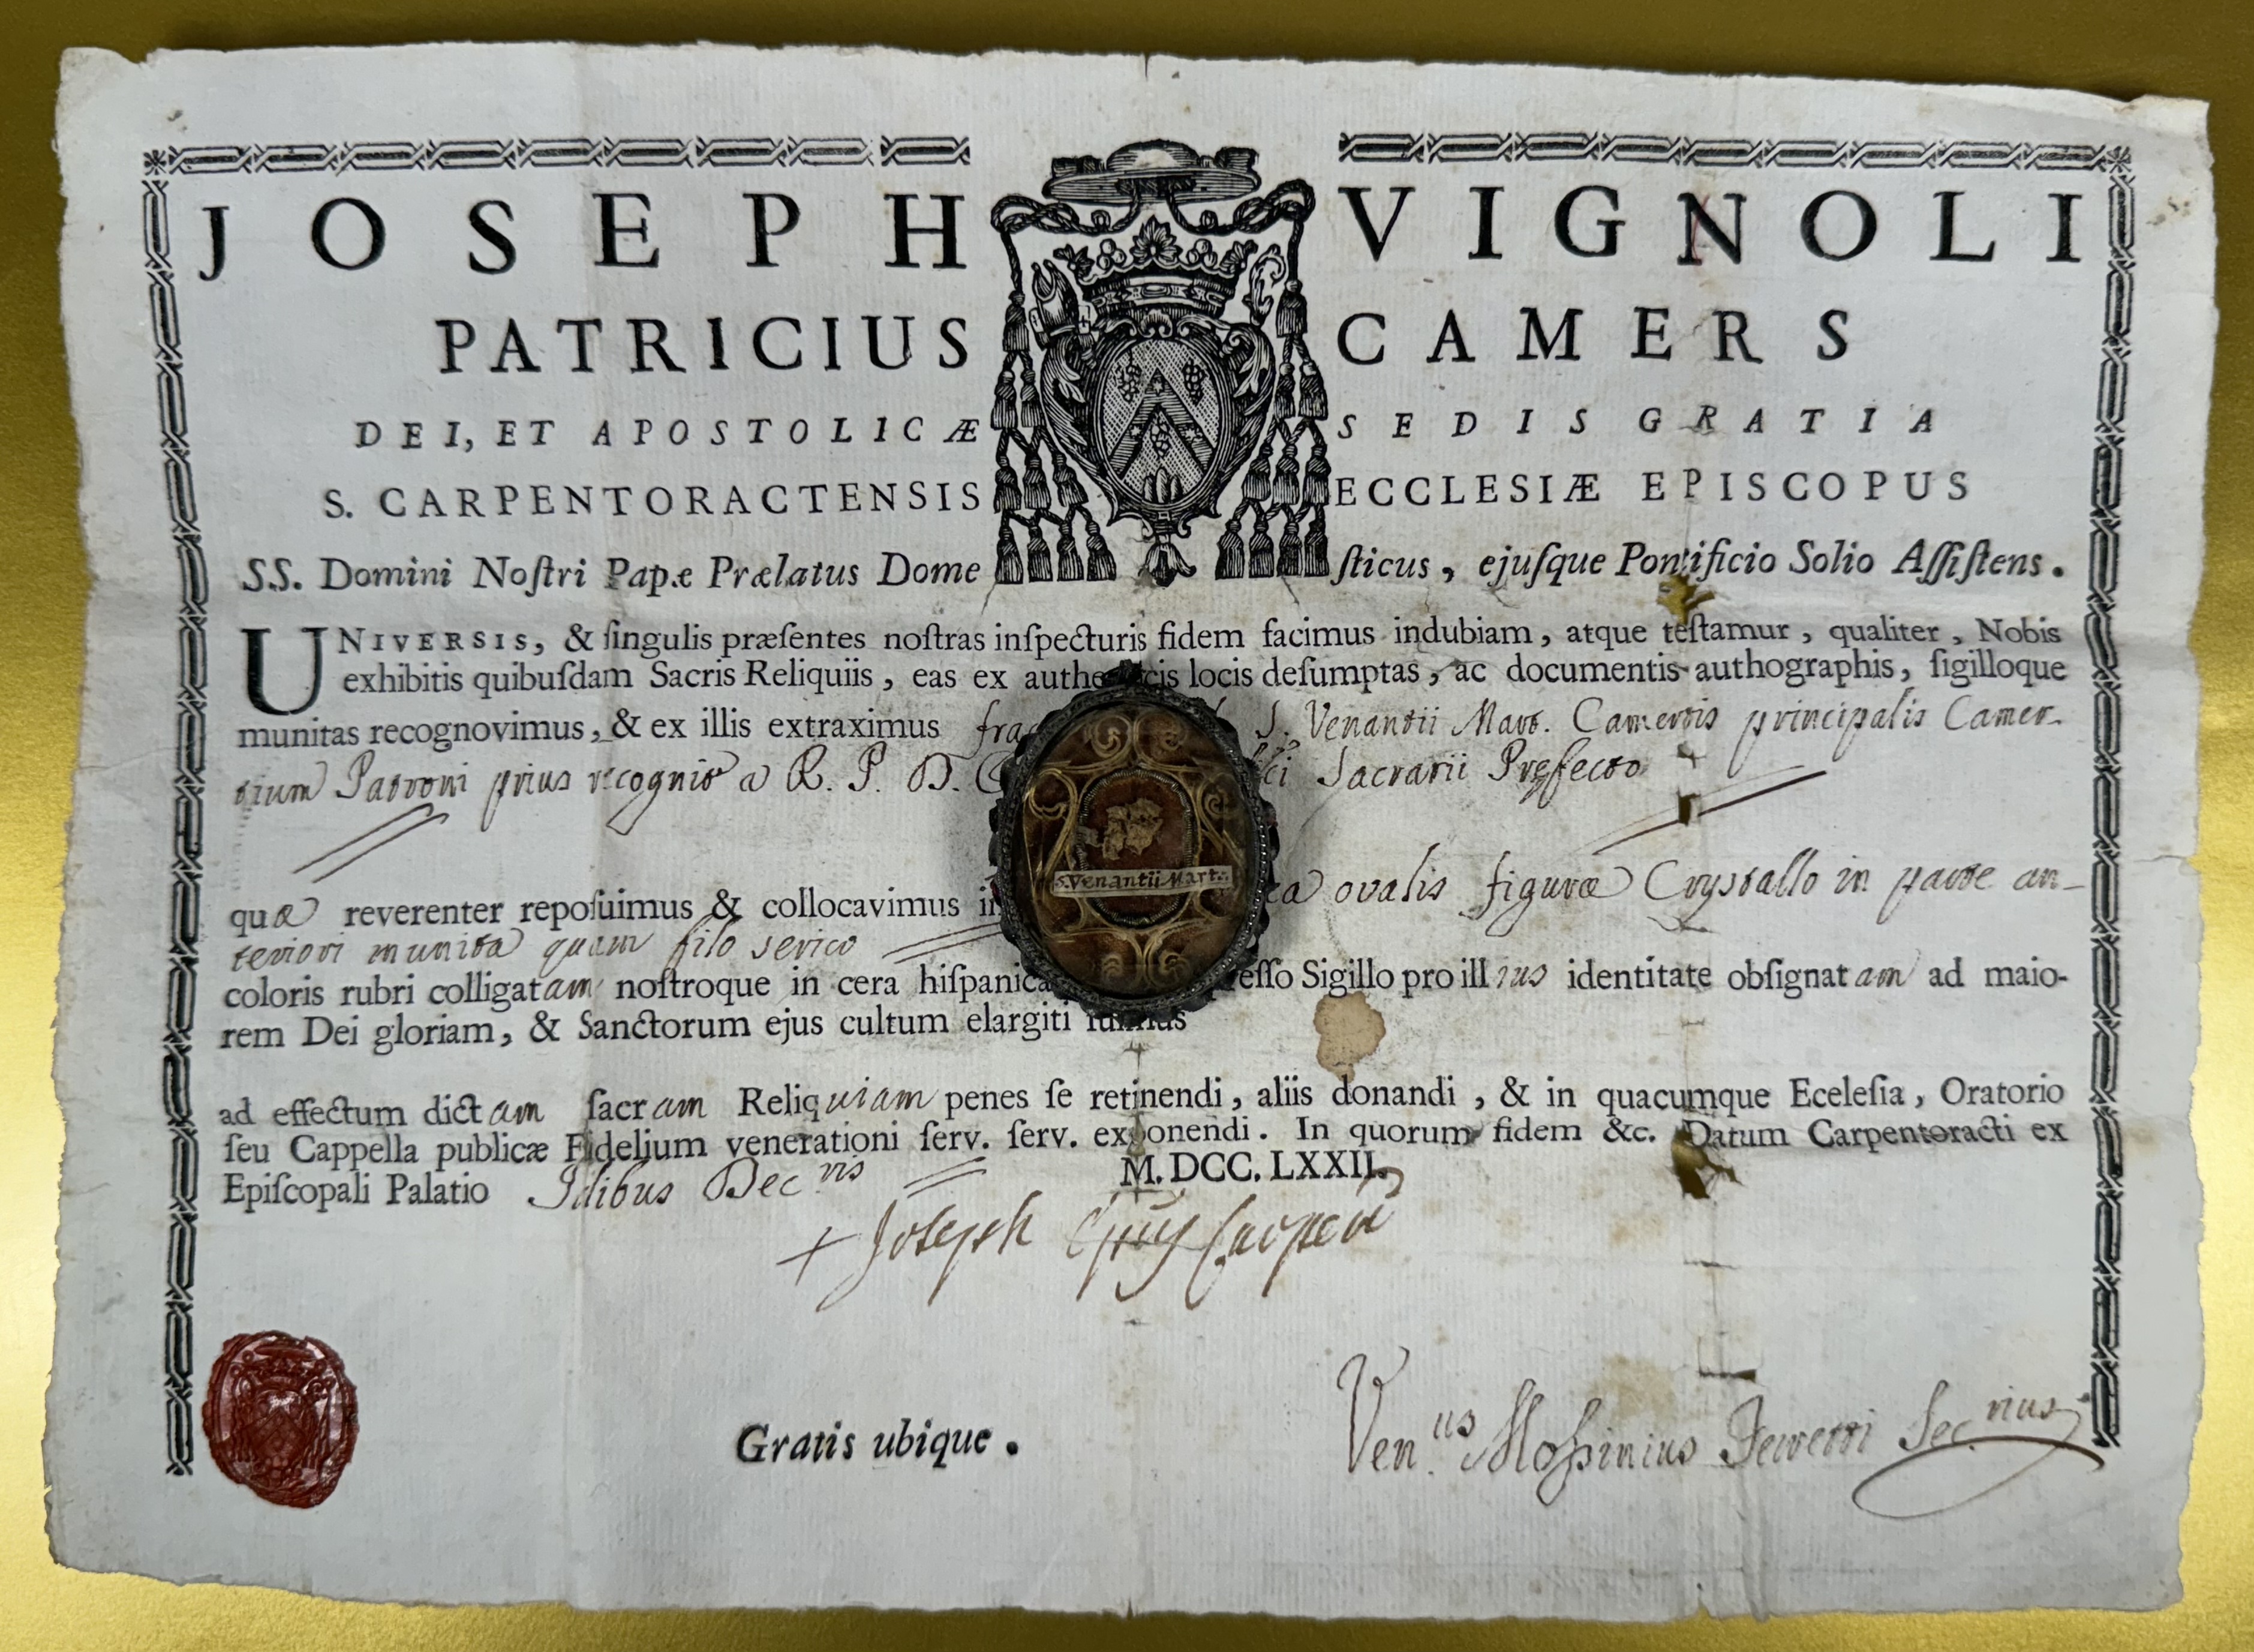 JOSEPH VIGNOLI
PATRICIUS CAMERS
DEI, ET APOSTOLICÆ SEDIS GRATIA
S. CARPENTORACTENSIS ECCLESIÆ EPISCOPUS
SS. Domini Noſtri Papæ Prælatus Dome ſticus, ejuſque Pontificio Solio Aſſiſtens.
UNIVERSIS, & ſingulis præſentes noſtras inſpecturis fidem facimus indubiam, atque teſtamur, qualiter, Nobis
exhibitis quibuſdam Sacris Reliquiis, eas ex authe cis locis deſumptas, ac documentis authographis, ſigilloque
munitas recognovimus, & ex illis extraximus S. Venantii Mart. Camertis principalis Camer-
tium Patroni prius recognit a R. P. D. Sacrarii Prefecto
quæ reverenter repoſuimus & collocavimus ovalis figuræ Crystallo in parte an-
teriori munita quam filo serico
S. Venantii Mart.
coloris rubri colligatam noſtroque in cera hiſpanica eſſo Sigillo pro illius identitate obſignatam ad maio-
rem Dei gloriam, & Sanctorum ejus cultum elargiti ſumus
ad effectum dictam ſacram Reliquiam penes ſe retinendi, aliis donandi, & in quacumque Eceleſia, Oratorio
ſeu Cappella publicæ Fidelium venerationi ſerv. ſerv. exponendi. In quorum fidem &c. Datum Carpentoracti ex
Epiſcopali Palatio Idibus Dec.ris M. DCC. LXXII.
+ Joseph Epūs Carpen
Gratis ubique.
Ven.us Sec.rius